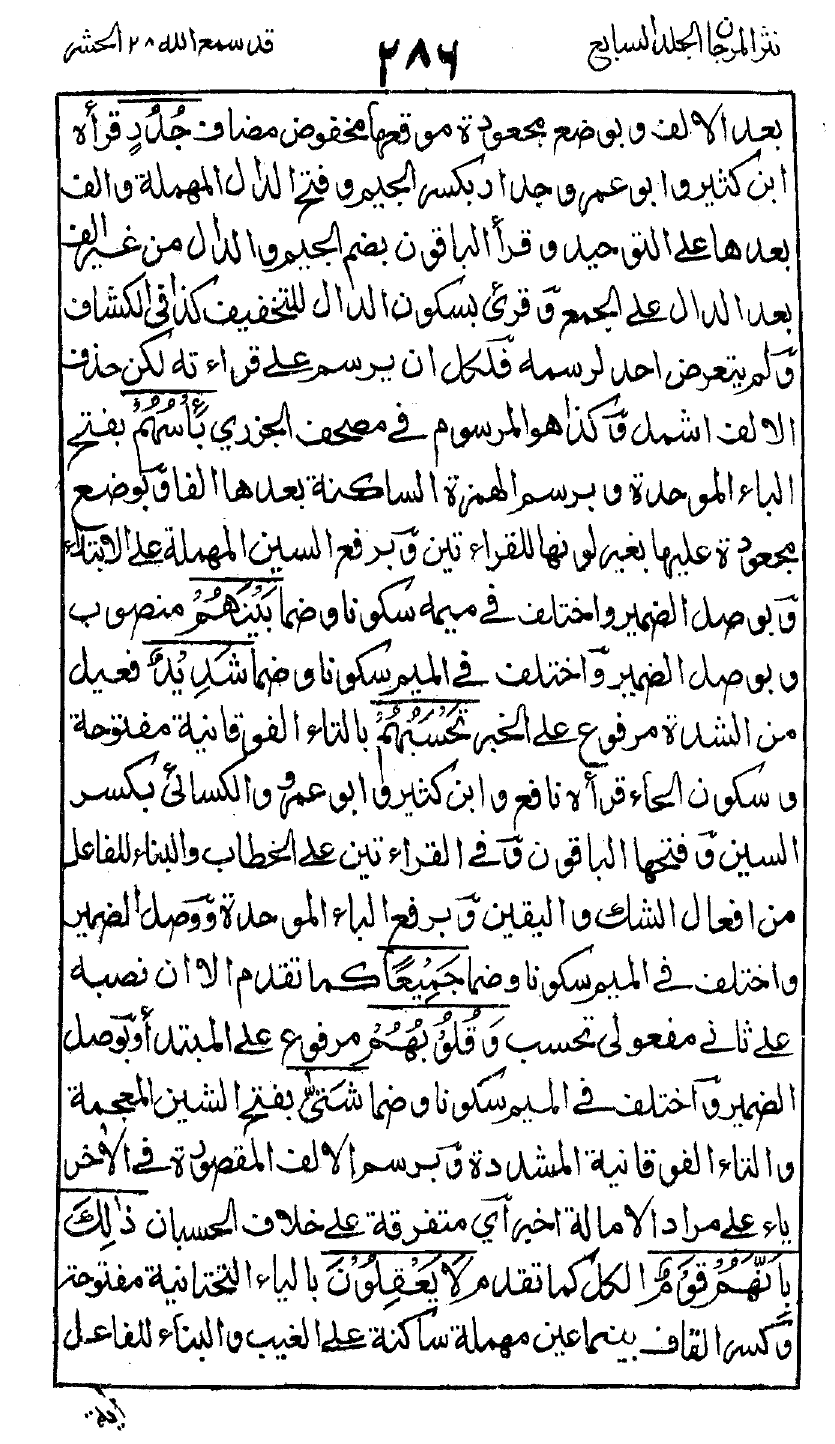 نثر المرجان الجلد السابع
٢٨٦
قد سمع الله ٢٨ الحشر
بعد الالف وبوضع مجعودة موقعها مخفوض مضاف جُدُرٍ قرأه
ابن كثير وابو عمرو جدار بكسر الجيم وفتح الدال المهملة والف
بعدها على التوحيد وقرأ الباقون بضم الجيم والدال من غير الف
بعد الدال على الجمع وقرئ بسكون الدال للتخفيف كذا فى الكشاف
ولم يتعرض احد لرسمه فلكل ان يرسم على قراءته لكن حذف
الالف اشمل وكذا هو المرسوم في مصحف الجزري بَأْسُهُمْ بفتح
الباء الموحدة وبرسم الهمزة الساكنة بعدها الفا وبوضع
مجعودة عليها بغير لونها للقراءتين وبرفع السين المهملة على الابتداء
وبوصل الضمير واختلف في ميمه سكونا وضما بَيْنَهُمْ منصوب
وبوصل الضمير واختلف في الميم سكونا وضما شَدِيْدٌ فعيل
من الشدة مرفوع على الخبر تَحْسَبُهُمْ بالتاء الفوقانية مفتوحة
وسكون الحاء قرأه نافع وابن كثير وابو عمرو والكسائى بكسر
السين وفتحها الباقون وفي القراءتين على الخطاب والبناء للفاعل
من افعال الشك واليقين وبرفع الباء الموحدة ووصل الضمير
واختلف في الميم سكونا وضما جَمِيْعًا كما تقدم الا ان نصبه
على ثاني مفعولى تحسب وَقُلُوْبُهُمْ مرفوع على المبتدأ وبوصل
الضمير واختلف في الميم سكونا وضما شَتّٰى بفتح الشين المعجمة
والتاء الفوقانية المشددة وبرسم الالف المقصورة في الاخر
ياء على مراد الامالة اخبر أي متفرقة على خلاف الحسبان ذٰلِكَ
بِاَنَّهُمْ قَوْمٌ الكل كما تقدم لَا يَعْقِلُوْنَ بالياء التحتانية مفتوحة
وكسر القاف بينهما عين مهملة ساكنة على الغيب والبناء للفاعل